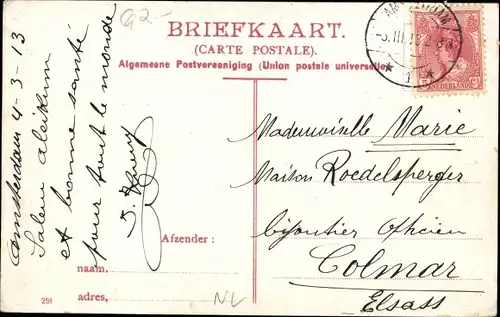 G2.-
BRIEFKAART.
(CARTE POSTALE).
Algemeene Postvereeniging (Union postale universelle)
AMSTERDAM
NEDERLAND
Amsterdam 4-3-13
Salem aleikum
et bonne santé
pour tout le monde
Mademoiselle Marie
Maison Roedelsperger
bijoutier Opticien
Colmar
Elsass
Afzender:
naam,
adres,
NL
291